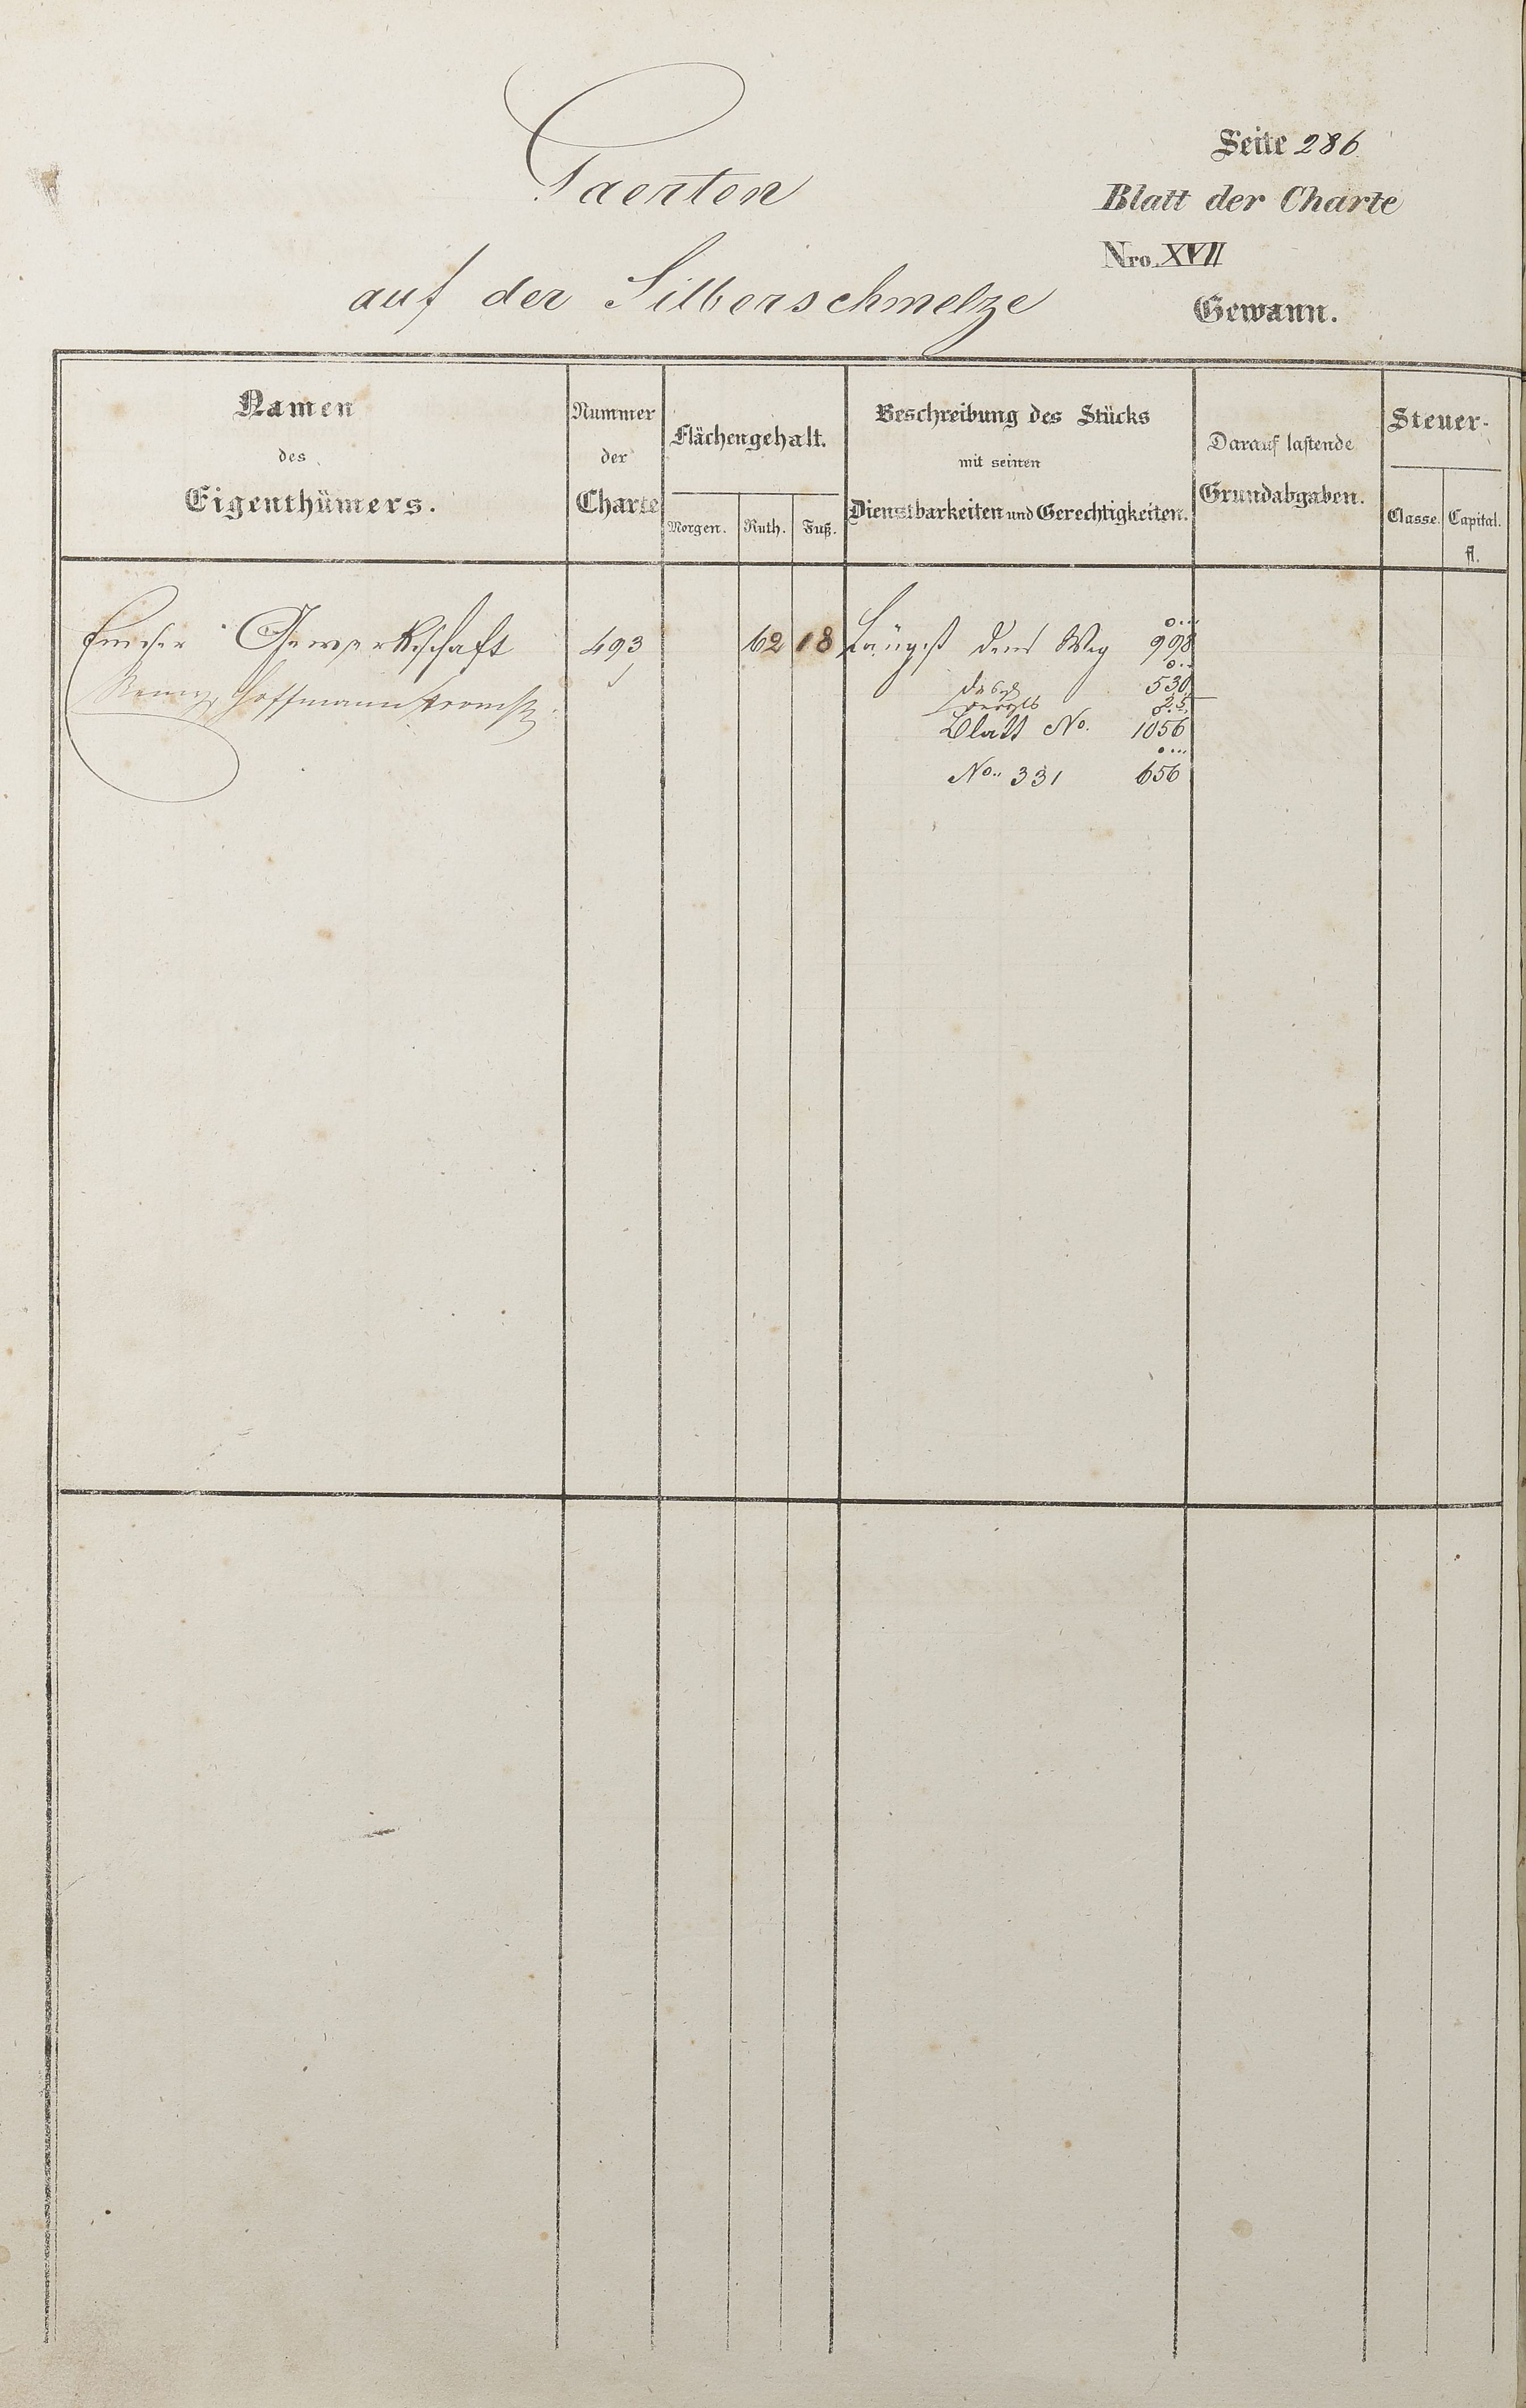 Gaerten
auf der Silberschmelze
Seite 286
Blatt der Charte
Nro. XVII
Gewann.
Namen
des
Eigenthümers.
Nummer
der
Charte
Flächengehalt.
Morgen. Ruth. Fuß.
Beschreibung des Stücks
mit seinen
Dienstbarkeiten und Gerechtigkeiten.
Darauf lastende
Grundabgaben.
Steuer-
Classe. Capital.
fl.
Emser Gewerkschaft 493 62 18 Längst dem Weg 998
Hoffmann
530
Blatt No. 1056
No. 331 656